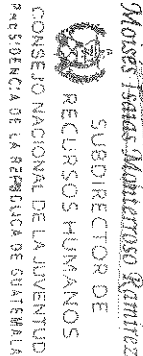 Moises Ivan Monterroso Ramirez
SUBDIRECTOR DE
RECURSOS HUMANOS
CONSEJO NACIONAL DE LA JUVENTUD
PRESIDENCIA DE LA REPUBLICA DE GUATEMALA